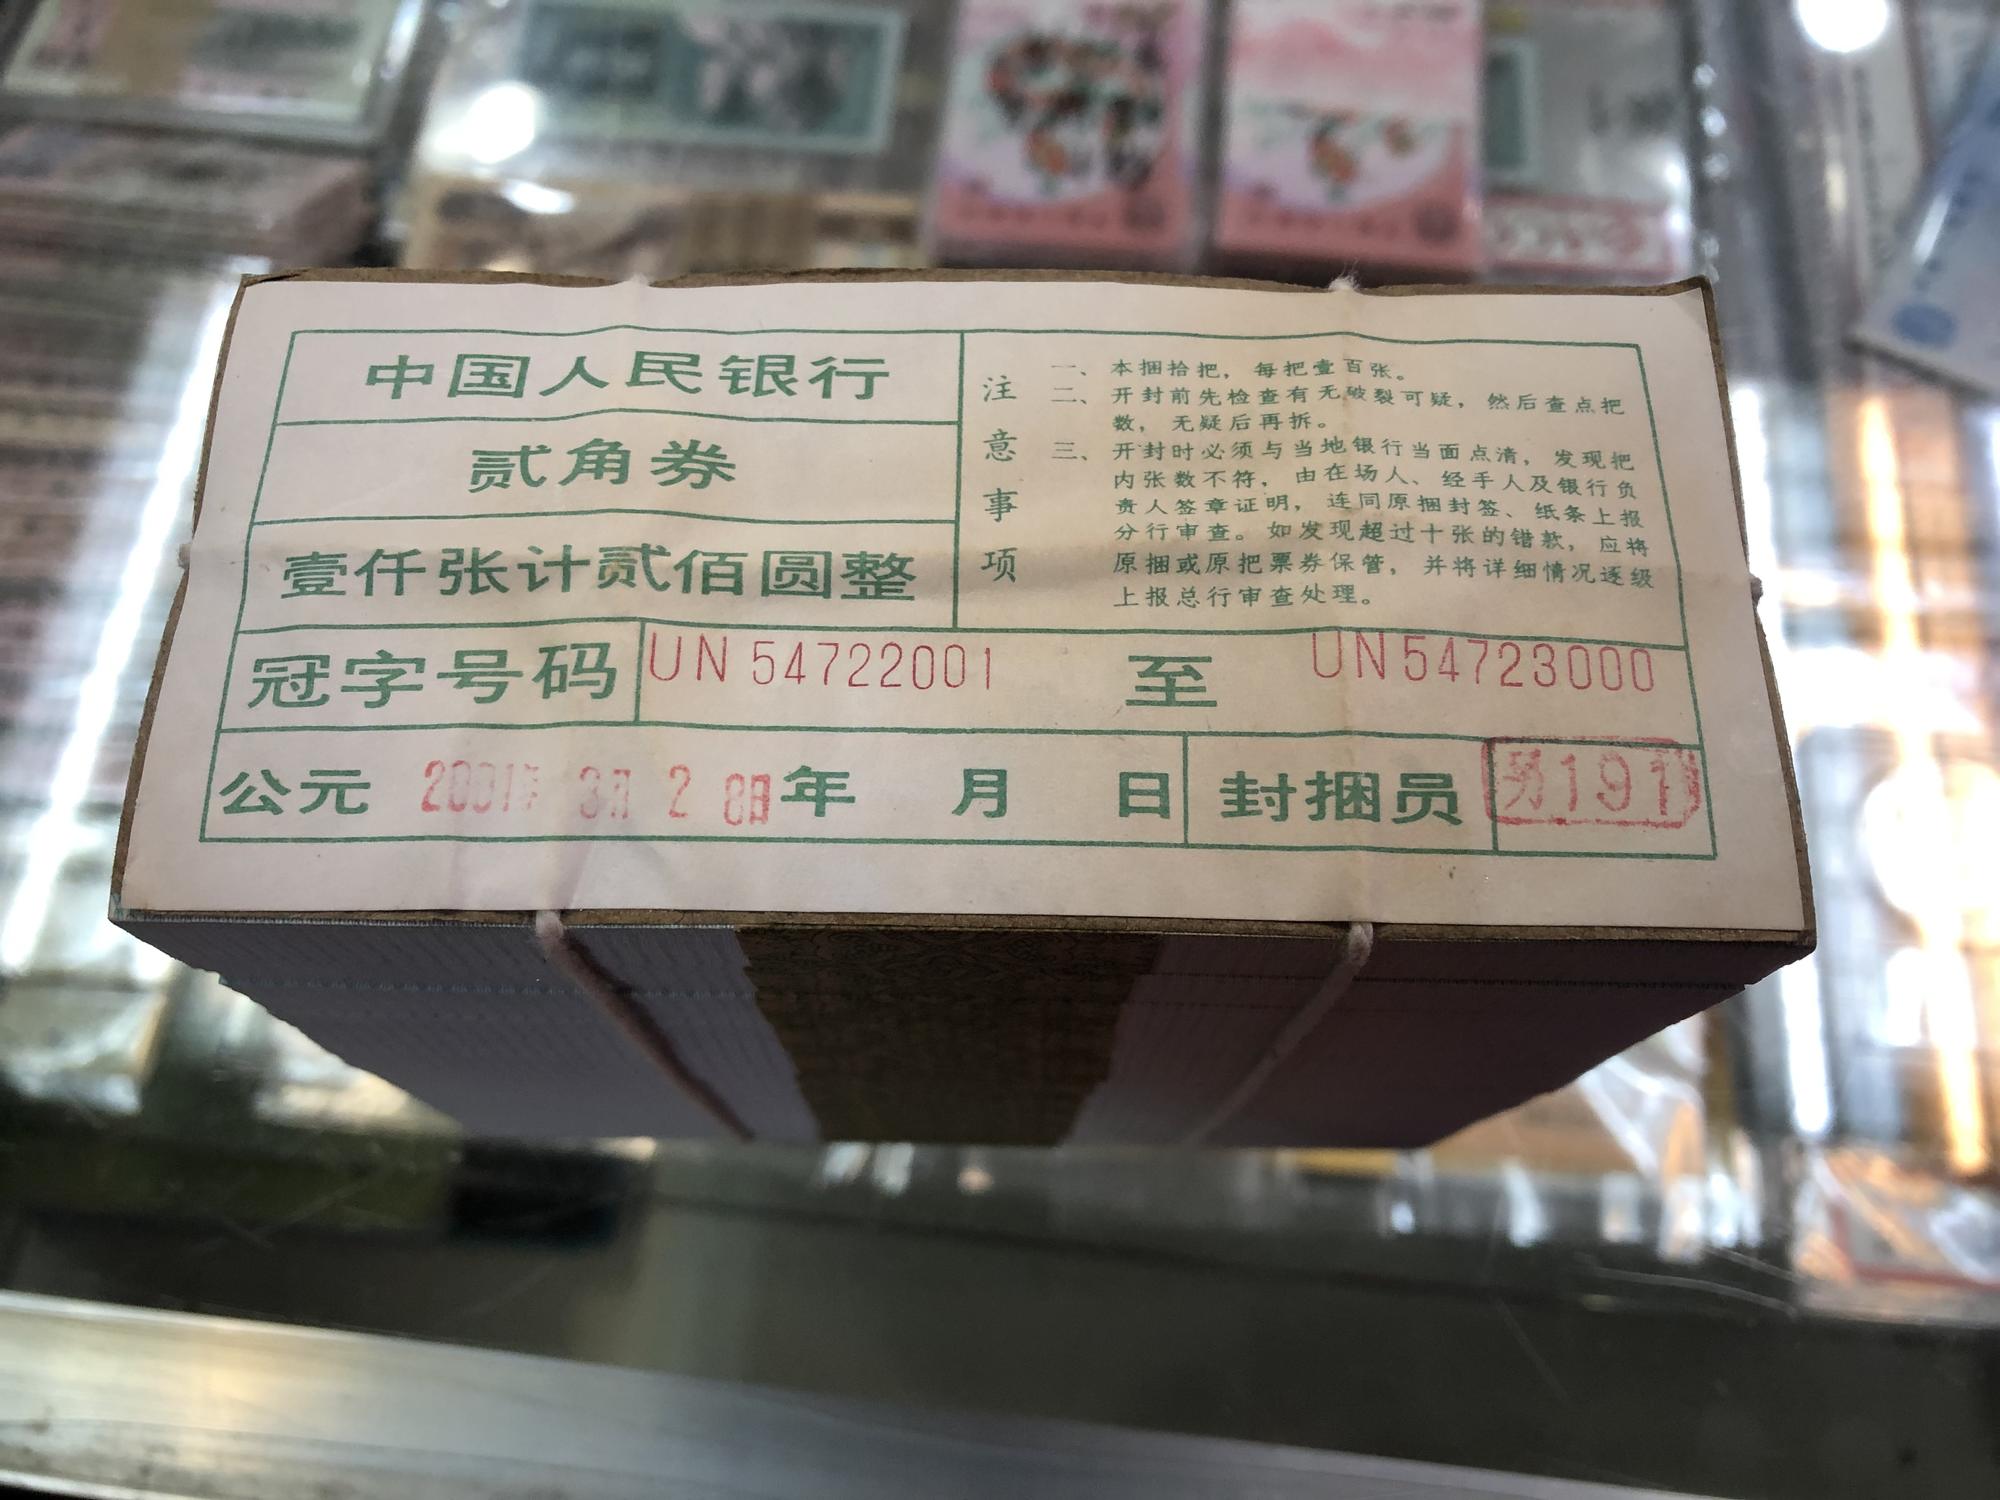 中国人民银行
贰角券
壹仟张计贰佰圆整
注意事项
一、本捆拾把，每把壹百张。
二、开封前先检查有无破裂可疑，然后查点把
数，无疑后再拆。
三、开封时必须与当地银行当面点清，发现把
内张数不符，由在场人、经手人及银行负
责人签章证明，连同原捆封签、纸条上报
分行审查。如发现超过十张的错款，应将
原捆或原把票券保管，并将详细情况逐级
上报总行审查处理。
冠字号码 UN 54722001 至 UN 54723000
公元 2001年 3月 2 8日 年 月 日 封捆员 191